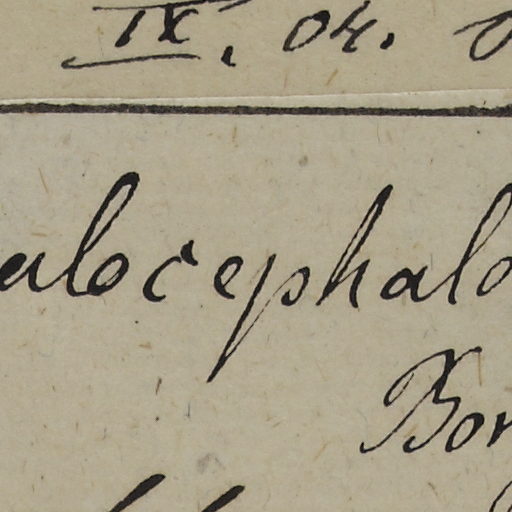 IX. 04.
alocephalo
Bor